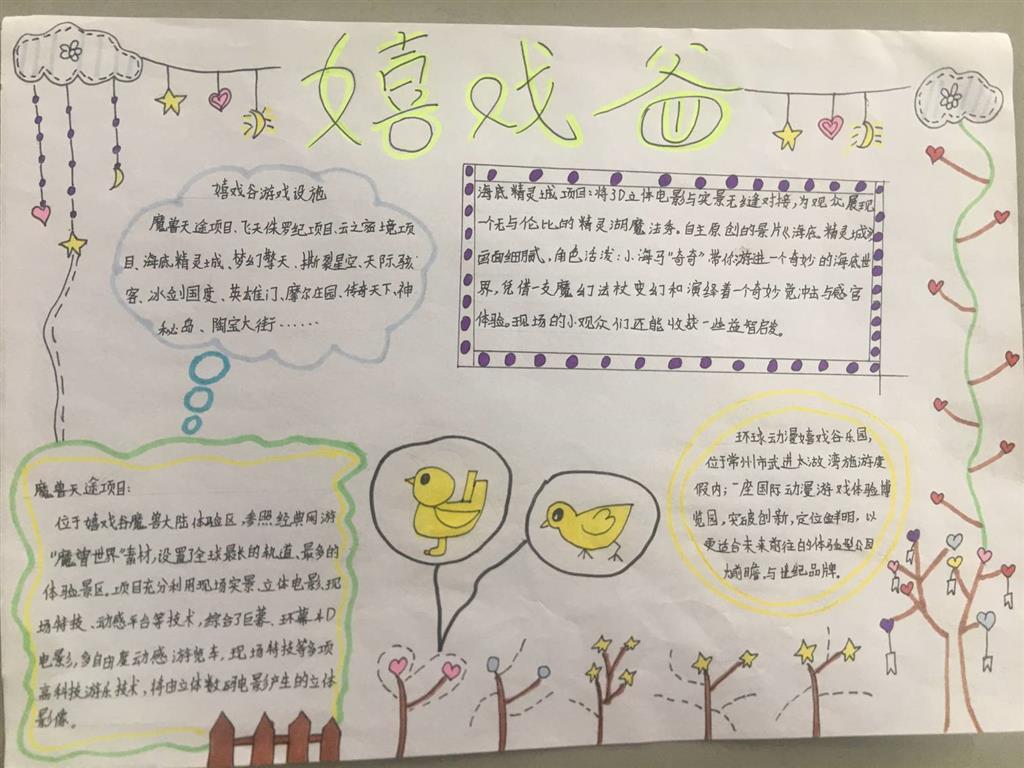 嬉戏谷
嬉戏谷游戏设施
魔兽天途项目、飞天侏罗纪项目、云之秘境项
目、海底精灵城、梦幻擎天、撕裂星空、天际骇
客、冰剑国度、英雄门、摩尔庄园、传奇天下、神
秘岛、陶宝大街……
海底精灵城项目:将3D立体电影与实景无缝对接,为观众展现
一个无与伦比的精灵湖魔法秀。自主原创的影片《海底精灵城》
画面细腻,角色活泼:小海马“奇奇”带你游进一个奇妙的海底世
界,凭借一支魔幻法杖变幻和演绎着一个奇妙觉冲击与感官
体验。现场的小观众们还能收获一些益智启发。
魔兽天途项目:
位于嬉戏谷魔兽大陆体验区,参照经典网游
“魔兽世界”素材,设置了全球最长的轨道、最多的
体验景区。项目充分利用现场实景、立体电影、现
场特技、动感平台等技术,综合了巨幕、环幕4D
电影,多自由度动感游览车,现场特技等多项
高科技游乐技术,将由立体数码电影产生的立体
影像。
环球动漫嬉戏谷乐园,
位于常州市武进太湖湾旅游度
假内;一座国际动漫游戏体验博
览园,突破创新,定位鲜明,以
更适合未来前往的体验型公园
为前瞻与世纪品牌。